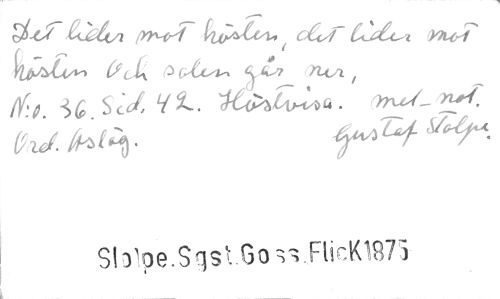 Det lider mot hösten, det lider mot
hösten Och solen går ner,
N:o. 36. Sid. 42. Höstvisa. mel-not.
Ord. Aslög. Gustaf Stolpe.
Stolpe.Sgst.Goss.FlicK1875